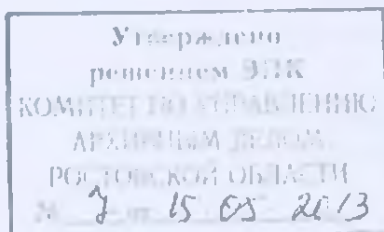 Утверждено
решением ЭПК
КОМИТЕТ ПО УПРАВЛЕНИЮ
АРХИВНЫМ ДЕЛОМ
РОСТОВСКОЙ ОБЛАСТИ
№ 7 от 15 05 2013